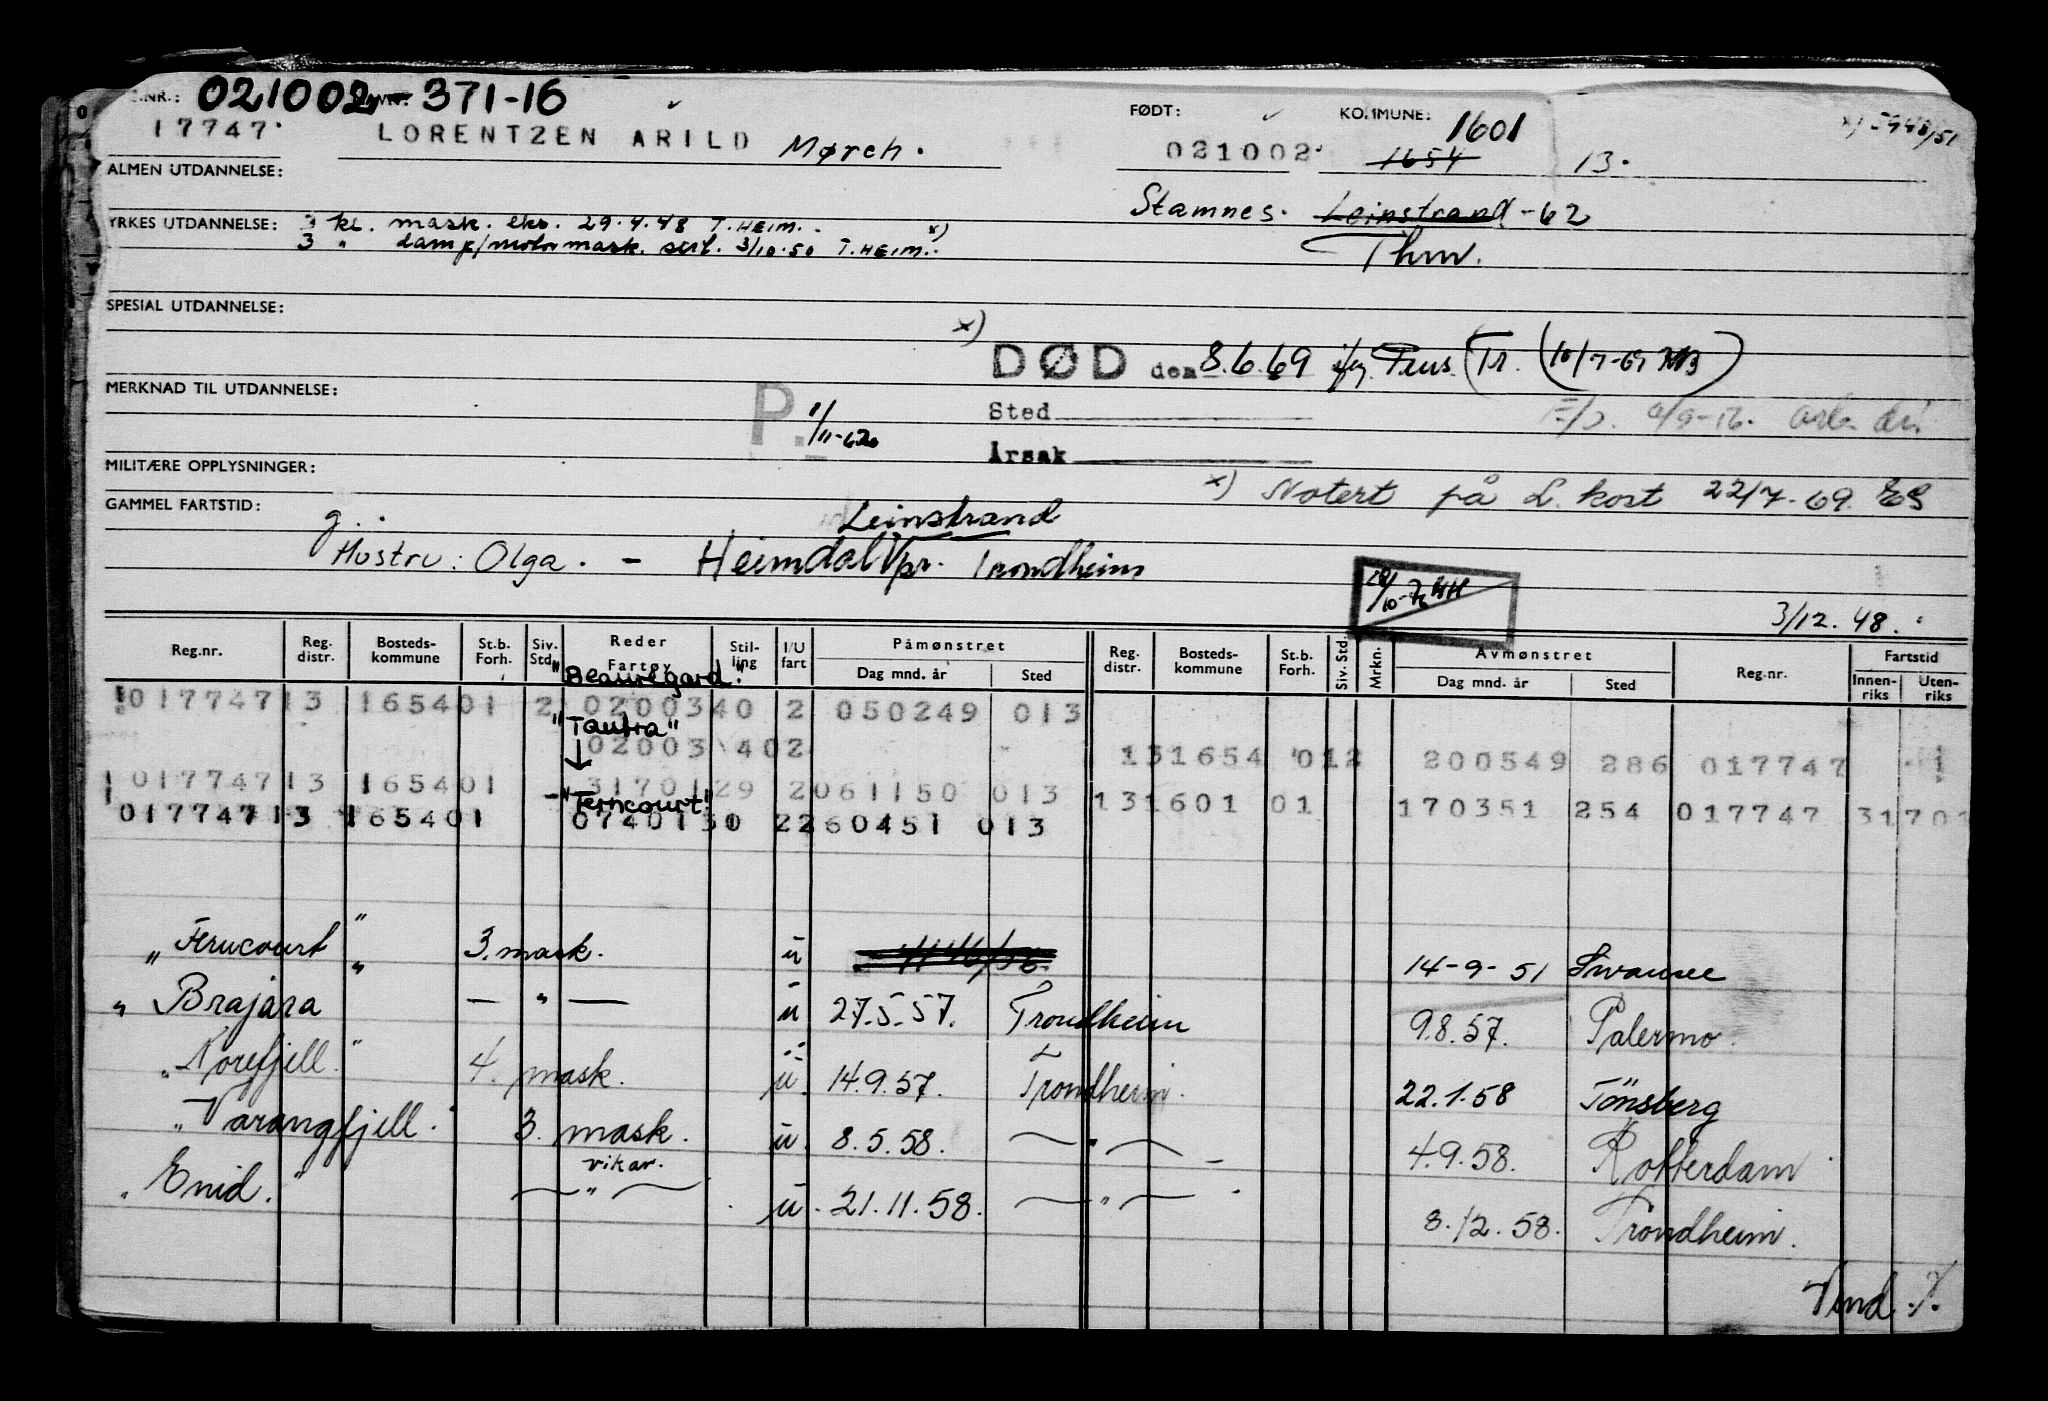 .NR.: 021002-371-16 FØDT: KOMMUNE: 1601
17747 LORENTZEN ARILD Mørch. 021002 1654 13.
ALMEN UTDANNELSE: Stamnes. Leinstrand -62
YRKES UTDANNELSE: kl. mask. eks. 29.4.48 T.HEIM. Thm.
3 " damp/motor mask. sert. 3/10.50 T.HEIM. x)
SPESIAL UTDANNELSE:
x) DØD den 8.6.69 Tr. (10/7-69
MERKNAD TIL UTDANNELSE: P.
Sted
Årsak
MILITÆRE OPPLYSNINGER: x) Notert på L. kort 22/7-69. ES
GAMMEL FARTSTID: g.. Leinstrand
Hustru: Olga. - Heimdal pr. Trondheim
3/12.48.
Reg.nr. Reg. distr. Bosteds-kommune St.b. Forh. Siv. Std. Reder Fartøy Stil-ling I/U fart Påmønstret Dag mnd. år Sted Reg. distr. Bosteds-kommune St.b. Forh. Siv. Std. Mrkn. Avmønstret Dag mnd. år Sted Reg.nr. Fartstid Innen-riks Uten-riks
"Beauregard"
017747 13 1654 01 2 0200340 2 050249 013
"Tautra"
02003 402 131654 012 200549 286 017747
017747 13 1654 01 3170129 2 061150 013
"Ferncourt" 131601 01 170351 254 017747 31701
017747 13 1654 01 0740130 2 260451 013
"Ferncourt" 3. mask. u 14-9-51 Swansee
"Brajara" — " — u 27.5.57. Trondheim 9.8.57. Palermo.
"Norefjell" 4. mask. u. 14.9.57. Trondheim. 22.1.58 Tönsberg
"Varangfjell" 3. mask. u. 8.5.58. — " — 4.9.58. Rotterdam
vikar.
"Enid." — " — u. 21.11.58. — " — 8.12.58. Trondheim.
Vend